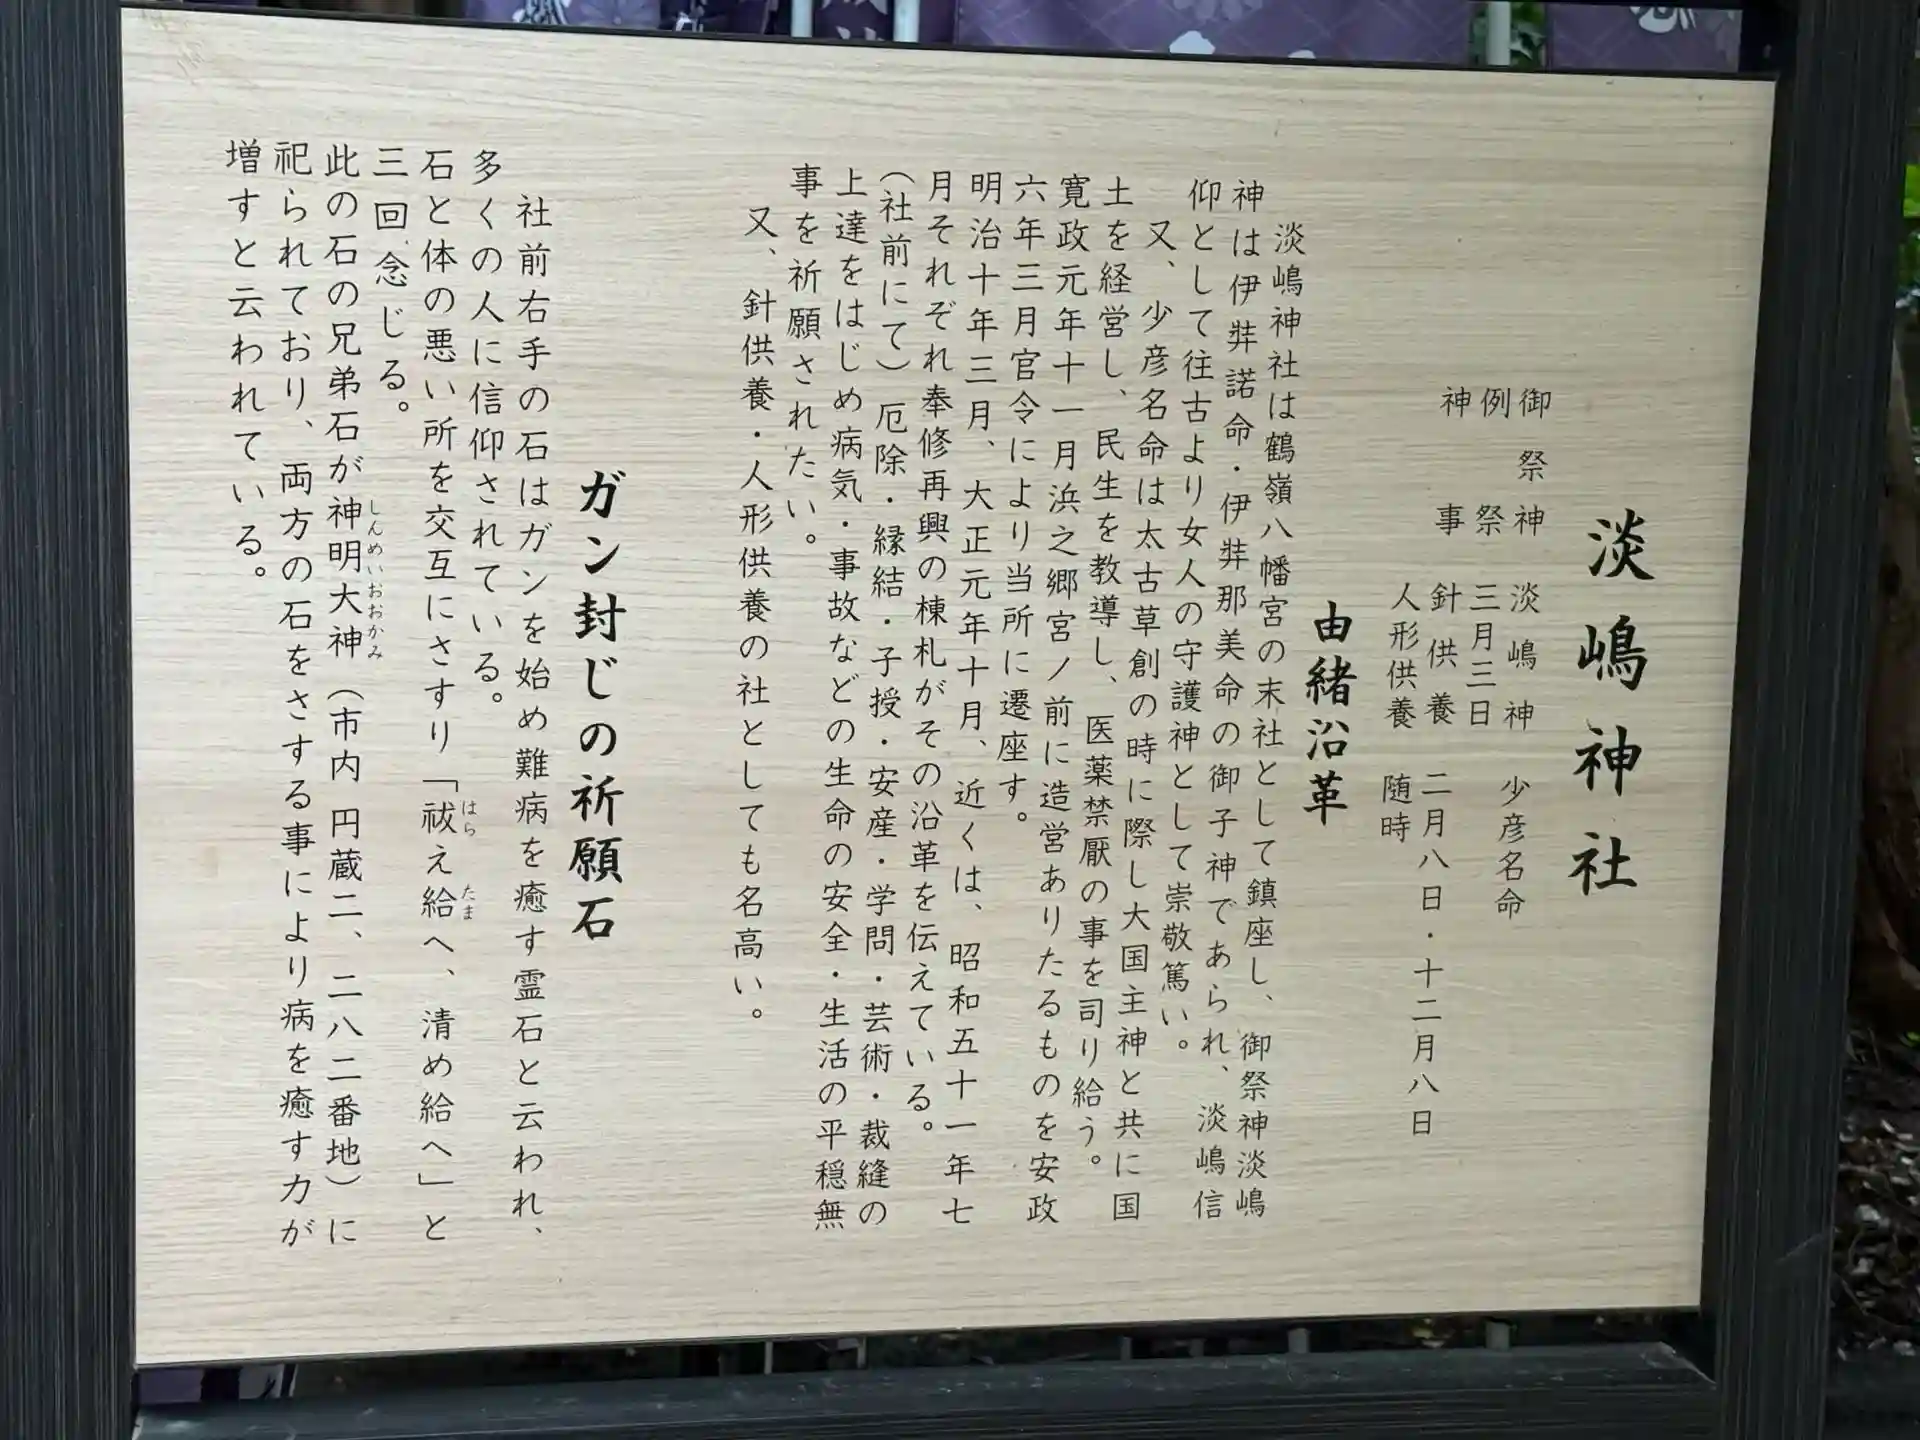 淡嶋神社
御祭神 淡嶋神 少彦名命
例祭 三月三日
神事 針供養 二月八日・十二月八日
人形供養 随時
由緒沿革
淡嶋神社は鶴嶺八幡宮の末社として鎮座し、御祭神淡嶋
神は伊弉諾命・伊弉那美命の御子神であられ、淡嶋信
仰として往古より女人の守護神として崇敬篤い。
又、少彦名命は太古草創の時に際し大国主神と共に国
土を経営し、民生を教導し、医薬禁厭の事を司り給う。
寛政元年十一月浜之郷宮ノ前に造営ありたるものを安政
六年三月官令により当所に遷座す。
明治十年三月、大正元年十月、近くは、昭和五十一年七
月それぞれ奉修再興の棟札がその沿革を伝えている。
(社前にて)厄除・縁結・子授・安産・学問・芸術・裁縫の
上達をはじめ病気・事故などの生命の安全・生活の平穏無
事を祈願されたい。
又、針供養・人形供養の社としても名高い。
ガン封じの祈願石
社前右手の石はガンを始め難病を癒す霊石と云われ、
多くの人に信仰されている。
石と体の悪い所を交互にさすり「祓え給へ、清め給へ」と
はら たま
三回念じる。
此の石の兄弟石が神明大神(市内円蔵二、二八二番地)に
しんめいおおかみ
祀られており、両方の石をさする事により病を癒す力が
増すと云われている。